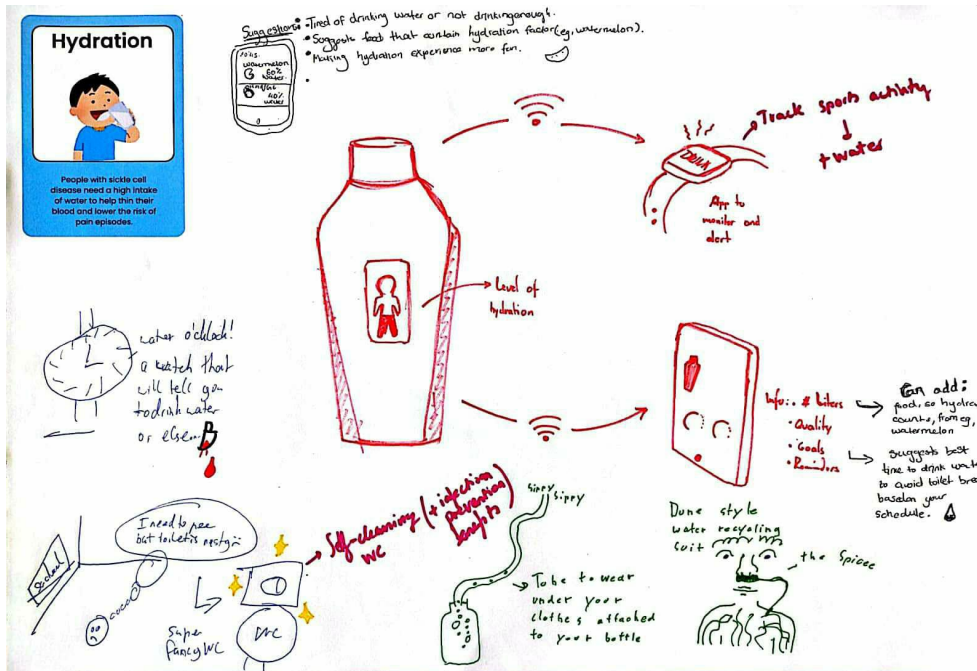 Hydration
People with sickle cell
disease need a high intake
of water to help thin their
blood and lower the risk of
pain episodes.
Suggestion:
• Tired of drinking water or not drinking enough.
• Suggests food that contain hydration factor (eg, watermelon).
• Making hydration experience more fun.
watermelon
water
40%
DRINK
Track sports activity
+ water
App to
monitor and
alert
Level of
hydration
water o'clock!
a watch that
will tell you
to drink water
or else...
Info:
• # liters
• Quality
• Goals
• Reminders
Can add:
food, so hydra
counts, from eg,
watermelon
Suggests best
time to drink wat
to avoid toilet bre
based on your
schedule.
I need to pee
but toilet is nasty
school
Super
fancy WC
WC
Self-cleaning (+ infection
WC
prevention
benefits)
sippy
sippy
Tube to wear
under your
clothes attached
to your bottle
Dune style
water recycling
suit
the spicee